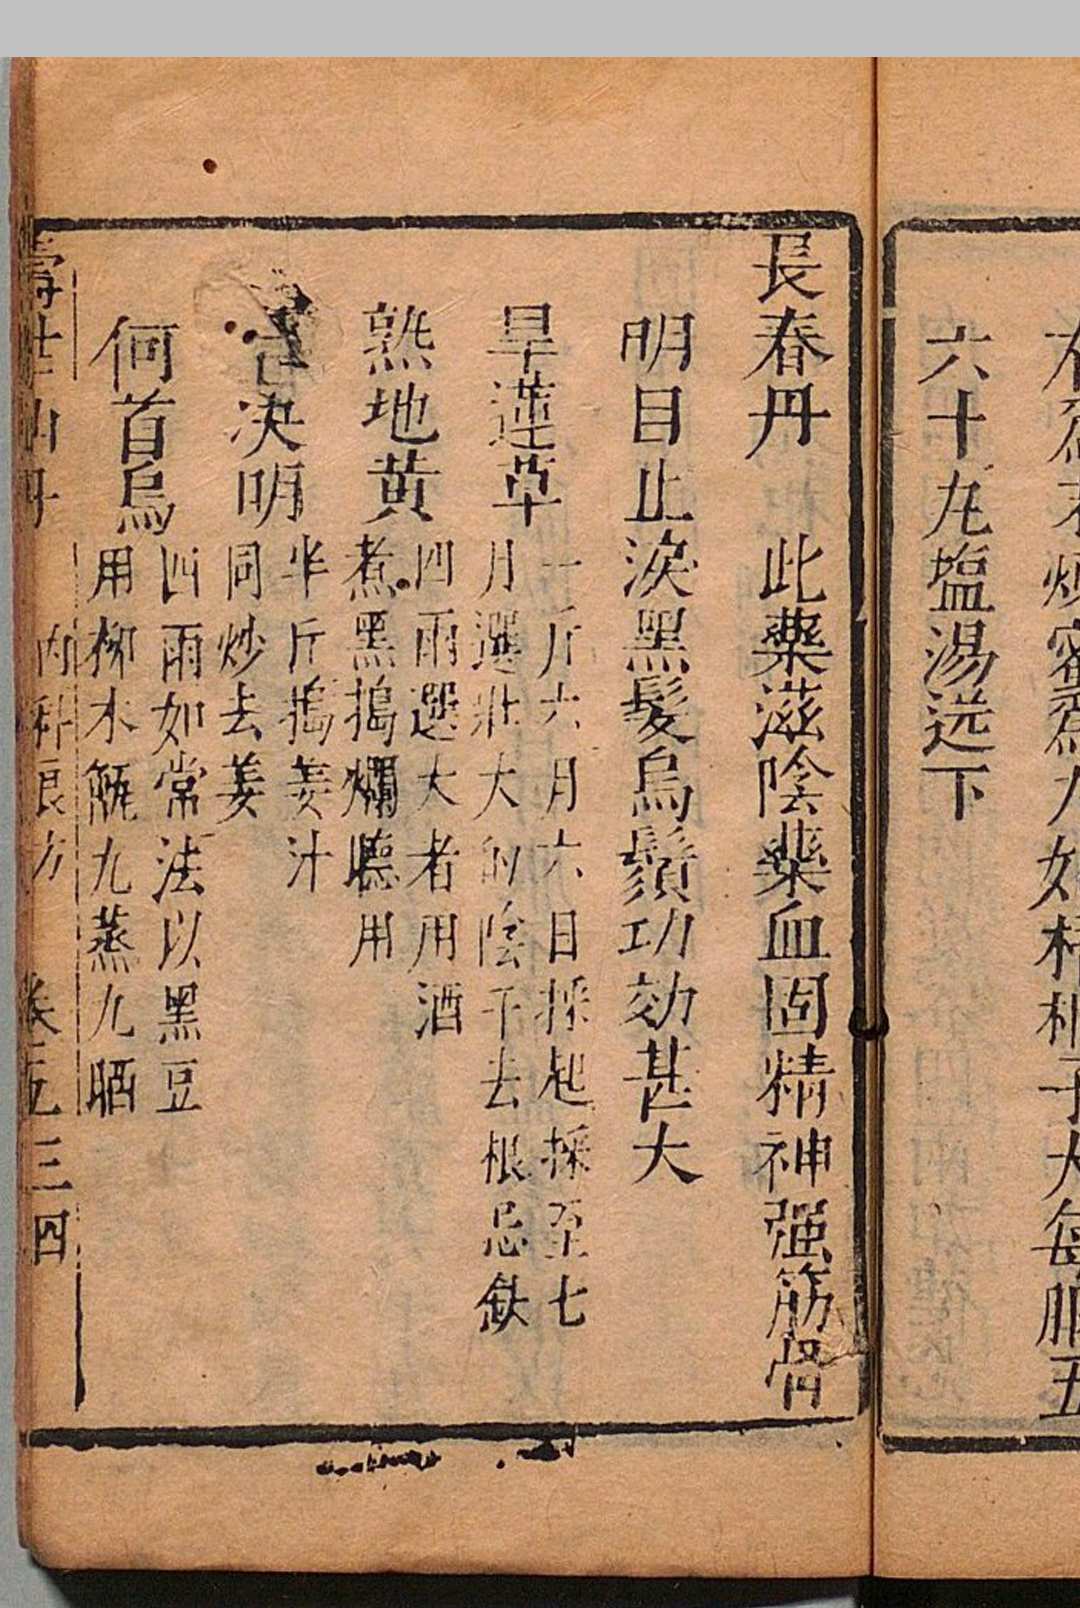 六十九塩湯送下
長春丹　此藥滋陰藥血固精神强筋骨
明目止淚黑髮烏鬚功効甚大
旱蓮草
一斤六月六日採起採至七
月選壯大的陰干去根忌鉄
熟地黄
四兩選大者用酒
煮黑搗爛聽用
决明
半斤搗姜汁
同炒去姜
何首烏
四兩如常法以黑豆
用柳木甑九蒸九晒
壽世仙丹　内科良方　卷之五　三四